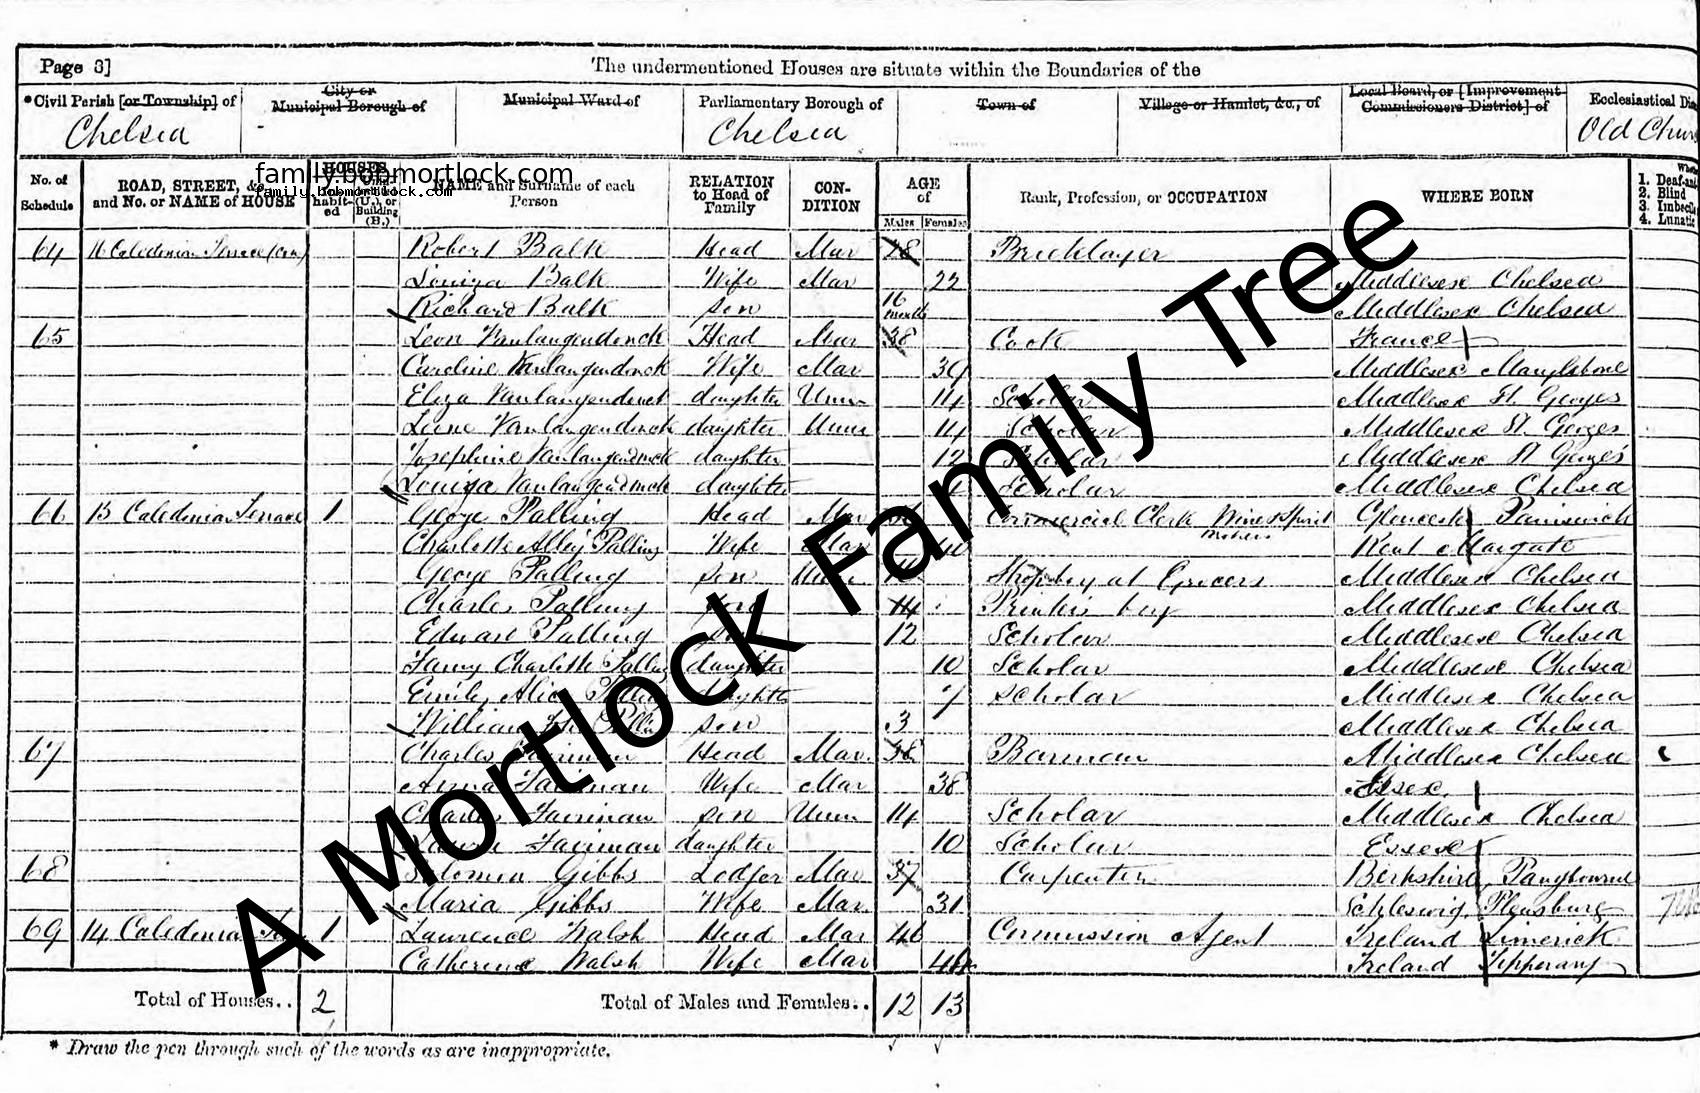 Page 8]
The undermentioned Houses are situate within the Boundaries of the
*Civil Parish [or Township] of
City or Municipal Borough of
Municipal Ward of
Parliamentary Borough of
Town of
Village or Hamlet, &c., of
Local Board, or [Improvement Commissioners District] of
Ecclesiastical
Chelsea
Chelsea
Old
family.bobmortlock.com
family.bobmortlock.com
No. of Schedule
ROAD, STREET, &c., and No. or NAME of HOUSE
HOUSES
NAME and Surname of each Person
RELATION to Head of Family
CON-DITION
AGE of
Males Females
Rank, Profession, or OCCUPATION
WHERE BORN
1. Deaf-and
2. Blind
3. Imbecile
4. Lunatic
64 16 Caledonian Terrace Robert Balk Head Mar 28 Bricklayer
Louiza Balk Wife Mar 22 Middlesex Chelsea
Richard Balk son 16 months Middlesex Chelsea
65 Leon Vanlangendonck Head Mar 38 Cook France
Caroline Vanlangendonck Wife Mar 39 Middlesex Marylebone
Eliza Vanlangendonck daughter Unm 14 Scholar Middlesex St. Georges
Vanlangendonck daughter Unm 14 Scholar Middlesex St. Georges
Josephine Vanlangendonck daughter 12 Scholar Middlesex St Georges
Louiza Vanlangendonck daughter Scholar Middlesex Chelsea
66 15 Caledonian Terrace 1 George Palling Head Mar Commercial Clerk Wine & Spirit Gloucester Painswick
Charlotte Palling Wife Mar 40 Kent Margate
George Palling son Unm Shopboy at Grocers Middlesex Chelsea
Charles Palling son 14 Printers boy Middlesex Chelsea
Edward Palling son 12 Scholar Middlesex Chelsea
Fanny Charlotte Palling daughter 10 Scholar Middlesex Chelsea
Emily Alice Palling daughter 7 Scholar Middlesex Chelsea
William John Palling son 3 Middlesex Chelsea
67 Charles Fairman Head Mar 38 Barman Middlesex Chelsea
Anna Fairman Wife Mar 38 Essex
Charles Fairman son Unm 14 Scholar Middlesex Chelsea
Fairman daughter 10 Scholar Essex
68 Solomon Gibbs Lodger Mar 37 Carpenter Berkshire Pangbourne
Maria Gibbs Wife Mar 31 Schleswig Flensburg
69 14 Caledonian Ter 1 Laurence Walsh Head Mar 46 Commission Agent Ireland Limerick
Catherine Walsh Wife Mar 44 Ireland Tipperary
Total of Houses.. 2 Total of Males and Females.. 12 13
* Draw the pen through such of the words as are inappropriate.
A Mortlock Family Tree